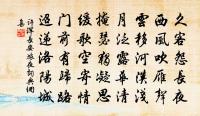 久客怨長夜
西風吹雁聲
雲移河漢淺
月泛露華清
掩瑟獨凝思
緩歌空寄情
門前有歸路
迢遞洛陽城
許渾長安旅夜詞典網
集